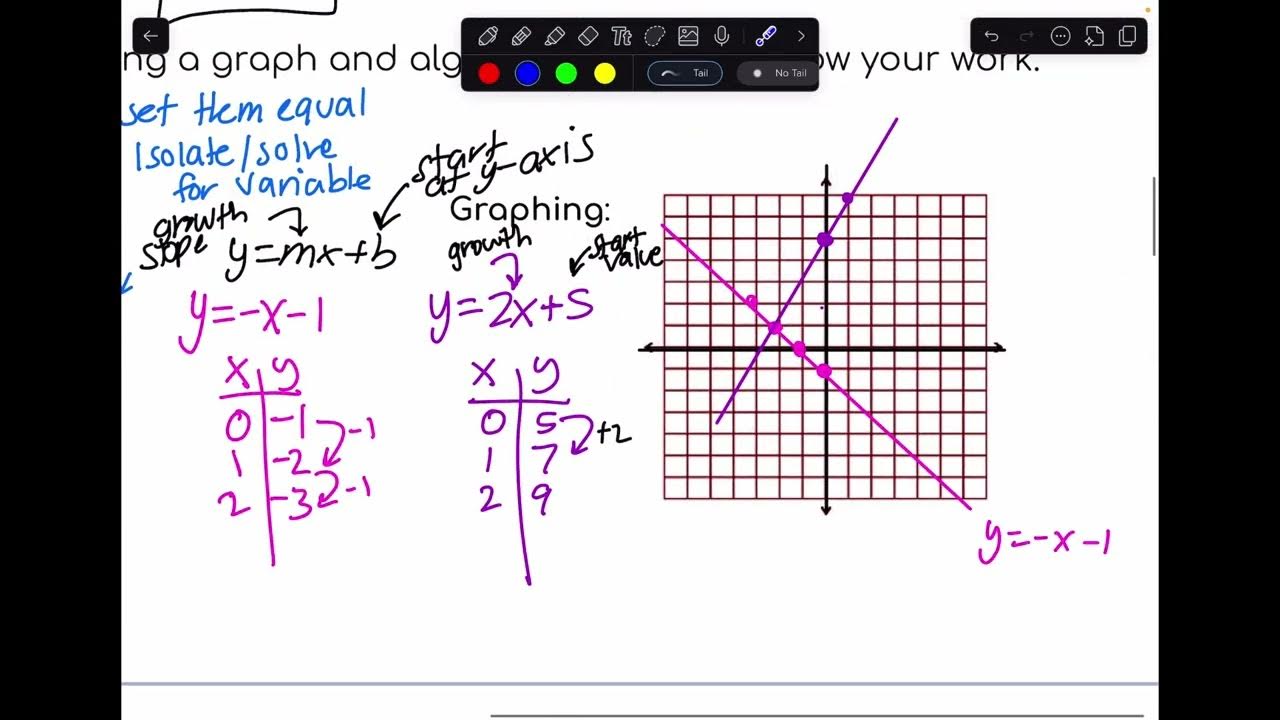 ng a graph and alg
ow your work.
Tt
Tail
No Tail
set them equal
Isolate/solve
for variable
start
at y-axis
growth
slope
y=mx+b
Graphing:
growth
start
value
y=-x-1
y=2x+5
x y
0 -1
1 -2
2 -3
-1
-1
x y
0 5
1 7
2 9
+2
y=-x-1